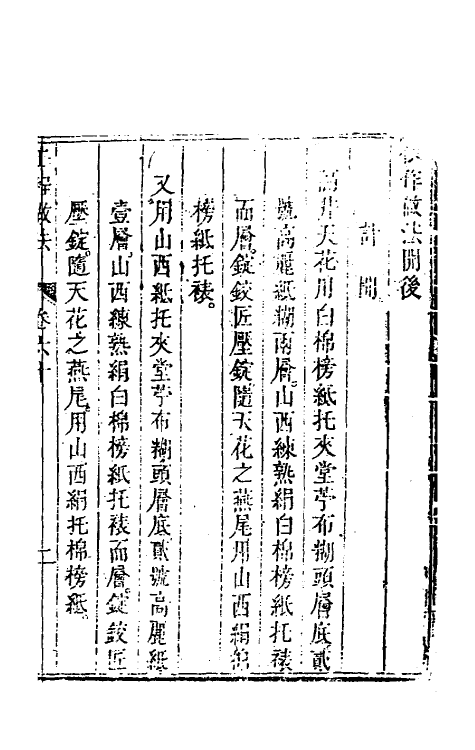 作做法開後
計開
井天花用白棉榜紙托夾堂苧布糊頭層底貳
號高麗紙糊兩層山西練熟絹白棉榜紙托裱
面層錠鉸匠壓錠隨天花之燕尾用山西絹綿
榜紙托裱
又用山西紙托夾堂苧布糊頭層底貳號高麗紙
壹層山西練熟絹白棉榜紙托裱面層錠鉸匠
壓錠隨天花之燕尾用山西絹托棉榜紙
工程做法 卷六十 二